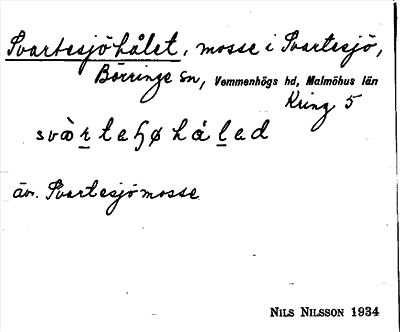 Svartesjöhålet, mosse i Svartesjö,
Börringe sn, Vemmenhögs hd, Malmöhus län
Kring 5
svàr̲taɧøhål̲ad
äv. Svartesjömosse
NILS NILSSON 1934